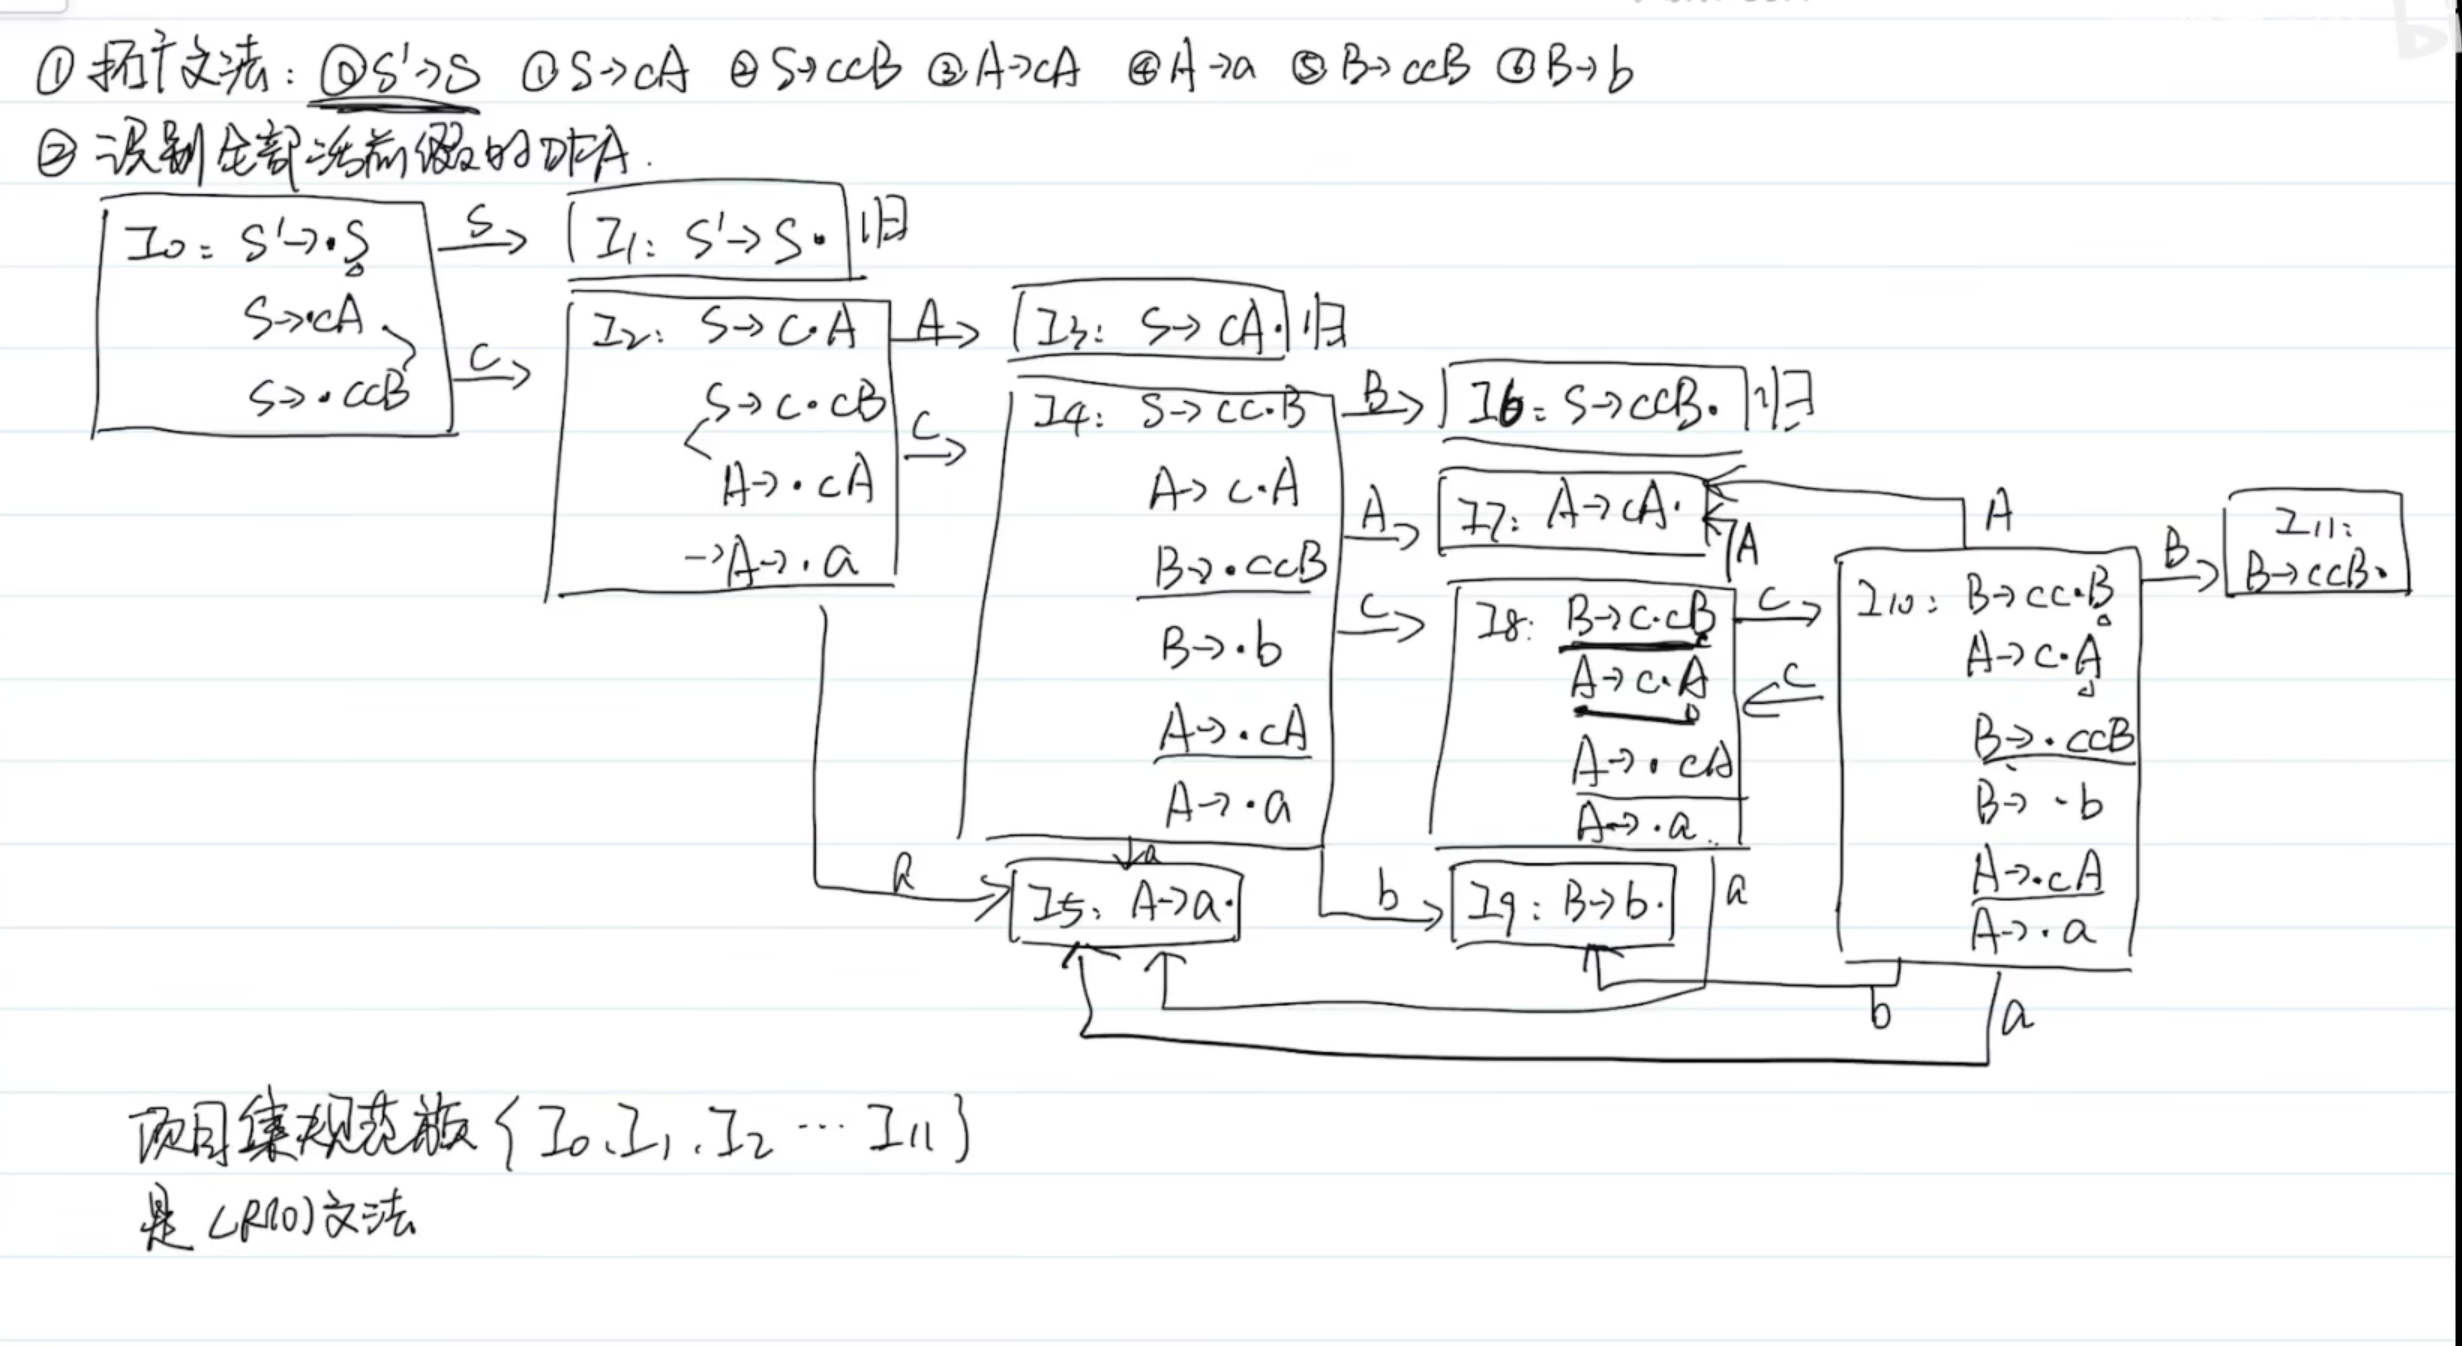 ① 拓广文法: ⓪S'→S ①S→cA ②S→ccB ③A→cA ④A→a ⑤B→ccB ⑥B→b
② 识别全部活前缀的DFA.
I0: S'→·S
S→·cA
S→·ccB
S
c
I1: S'→S· 归
I2: S→c·A
S→c·cB
A→·cA
→A→·a
A
c
a
I3: S→cA· 归
I4: S→cc·B
A→c·A
B→·ccB
B→·b
A→·cA
A→·a
B
A
c
a
b
I5: A→a·
I6: S→ccB· 归
I7: A→cA·
A
I8: B→c·cB
A→c·A
A→·cA
A→·a
c
c
a
I9: B→b·
A
I10: B→cc·B
A→c·A
B→·ccB
B→·b
A→·cA
A→·a
B
b
a
I11:
B→ccB·
项目集规范族{I0、I1、I2 … I11}
是LR(0)文法